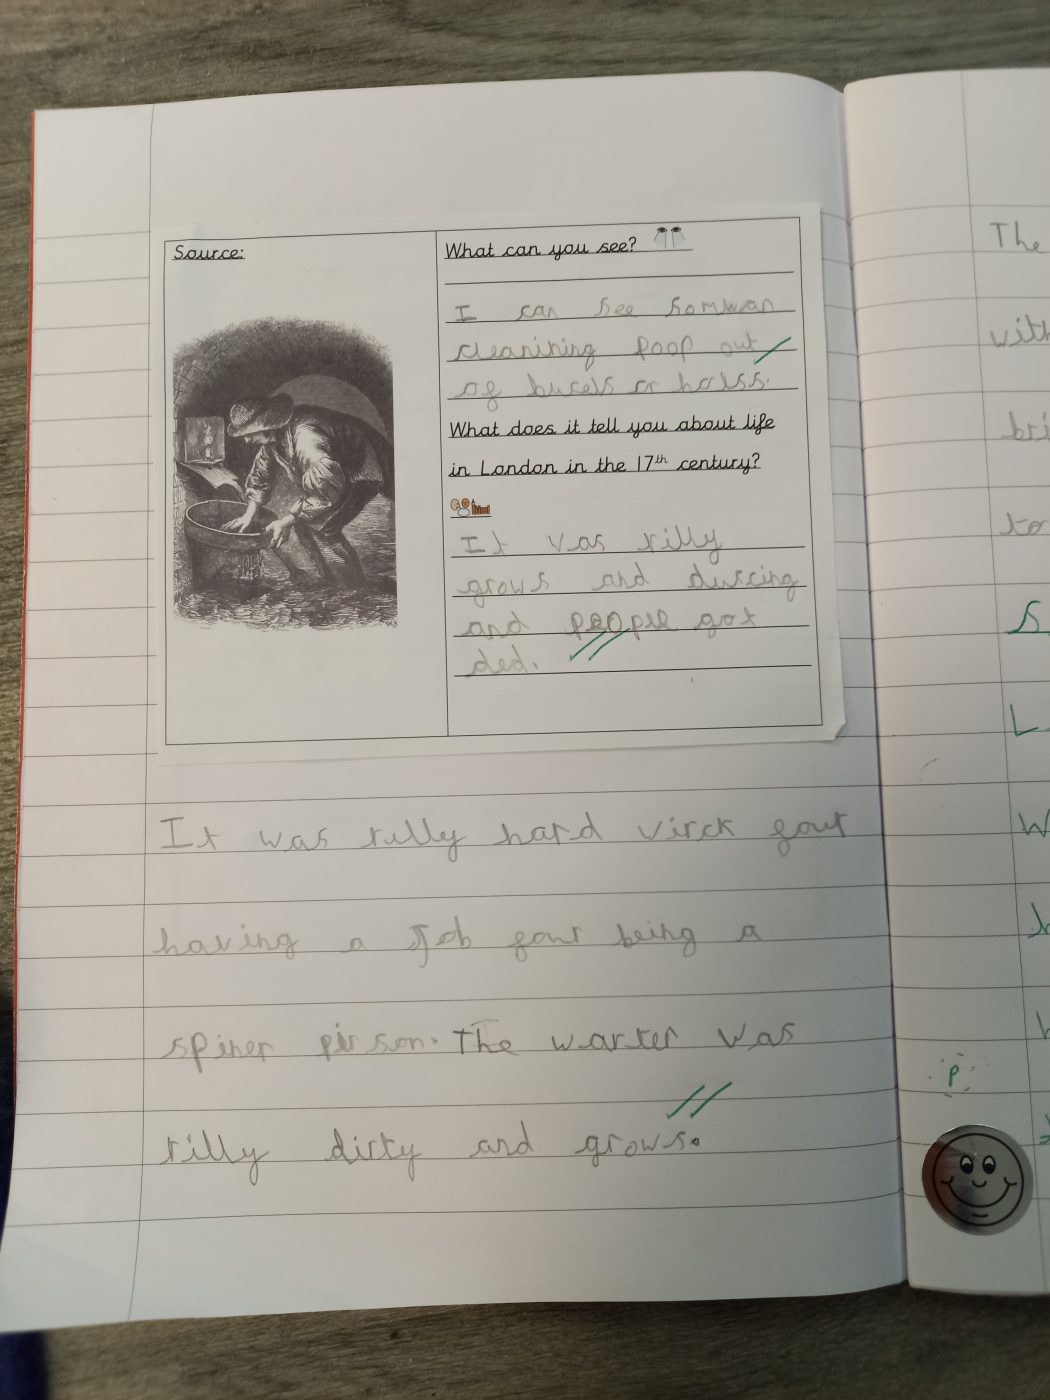 Source:
What can you see?
I can see somwan
cleanining poop out
of bucels or holss.
What does it tell you about life
in London in the 17th century?
It vas rilly
grows and duscing
and people got
ded.
It was rilly hard virck four
having a Job four being a
spiner pirson. The warter was
rilly dirty and grows.
The
with
bri
to
S
L
W
P